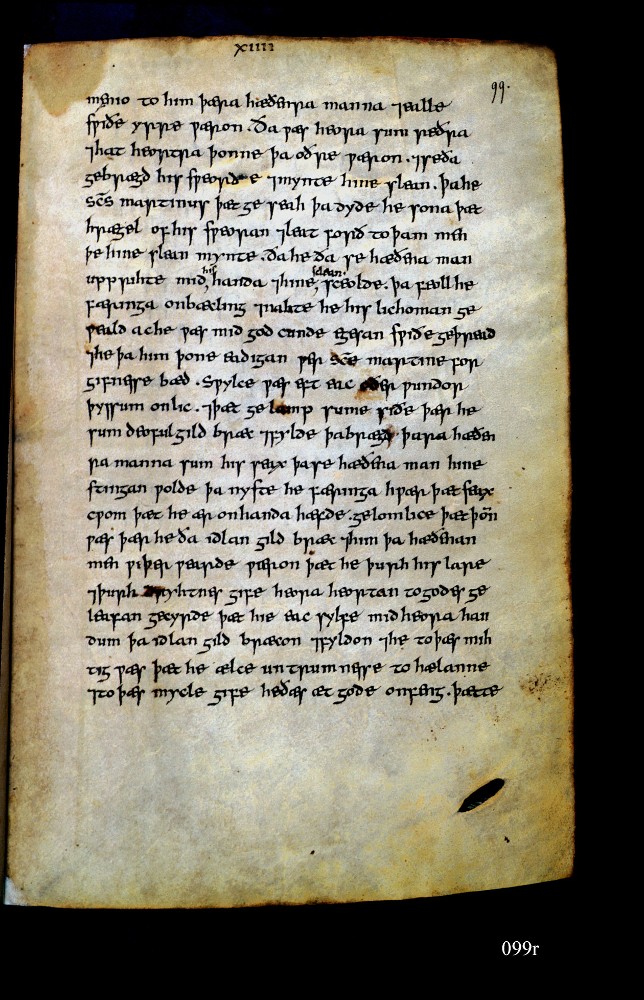 xiiii
99.
menio to him þæra hæðenra manna ⁊ealle
sƿiðe yrre ƿæron. Ða ƿæs heora sum reðra
⁊hat heortra þonne þa oðre ƿæron. ⁊se ða
gebrægd his sƿeorde ⁊mynte hine slean. þa he
scs martinus þæt ge seah þa dyde he sona þæt
hrægel of his sƿeoran ⁊leat forð to þam men
þe hine slean mynte. Ða he ða se hæðena man
upp rihte mid his handa ⁊hine slean sceolde. þa feoll he
færinga on bæcling ⁊ahte he his lichoman ge
ƿeald ac he ƿæs mid god cunde egesan sƿiðe geþread
⁊he þa him þone eadigan ƿer sce martine for
gifnesse bæd. Sƿylce ƿæs eft eac oðer ƿundor
þyssum onlic. ⁊þæt ge lamp sume siðe þær he
sum deoful gild bræc ⁊fylde þa brægd þara hæðe
nra manna sum his seax þa se hæðena man hine
stingan ƿolde þa nyste he færinga hƿær þæt seax
cƿom þæt he ær on handa hæfde. gelomlice þæt þon
ƿæs þær he ða idlan gild bræc ⁊him þa hæðenan
men ƿiþer ƿearde ƿæron þæt he þurh his lare
⁊þurh drihtnes gife heora heortan to godes ge
leafan gecyrde þæt hie eac sylfe mid heora han
dum þa idlan gild bræcon ⁊fyldon ⁊he to þæs mih
tig ƿæs þæt he ælce untrumnesse to hælanne
⁊to þæs mycle gife he ðæs æt gode onfeng. þætte
099r